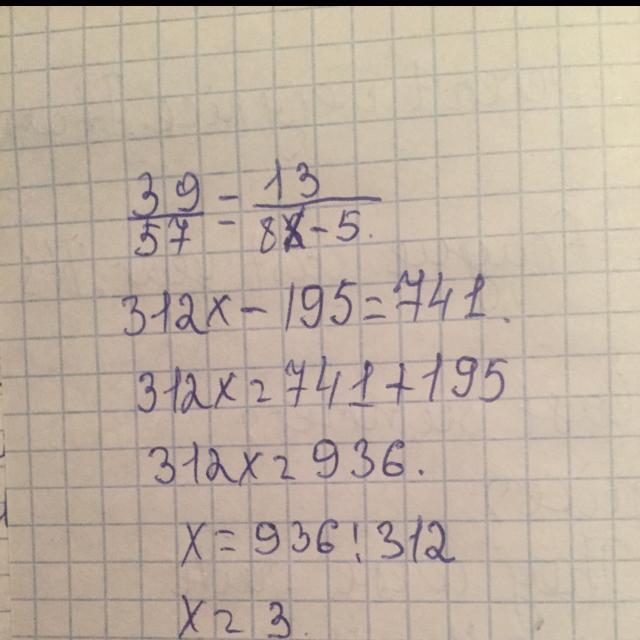 39/57 = 13/(8x - 5).
312x - 195 = 741.
312x = 741 + 195
312x = 936.
x = 936 : 312
x = 3.